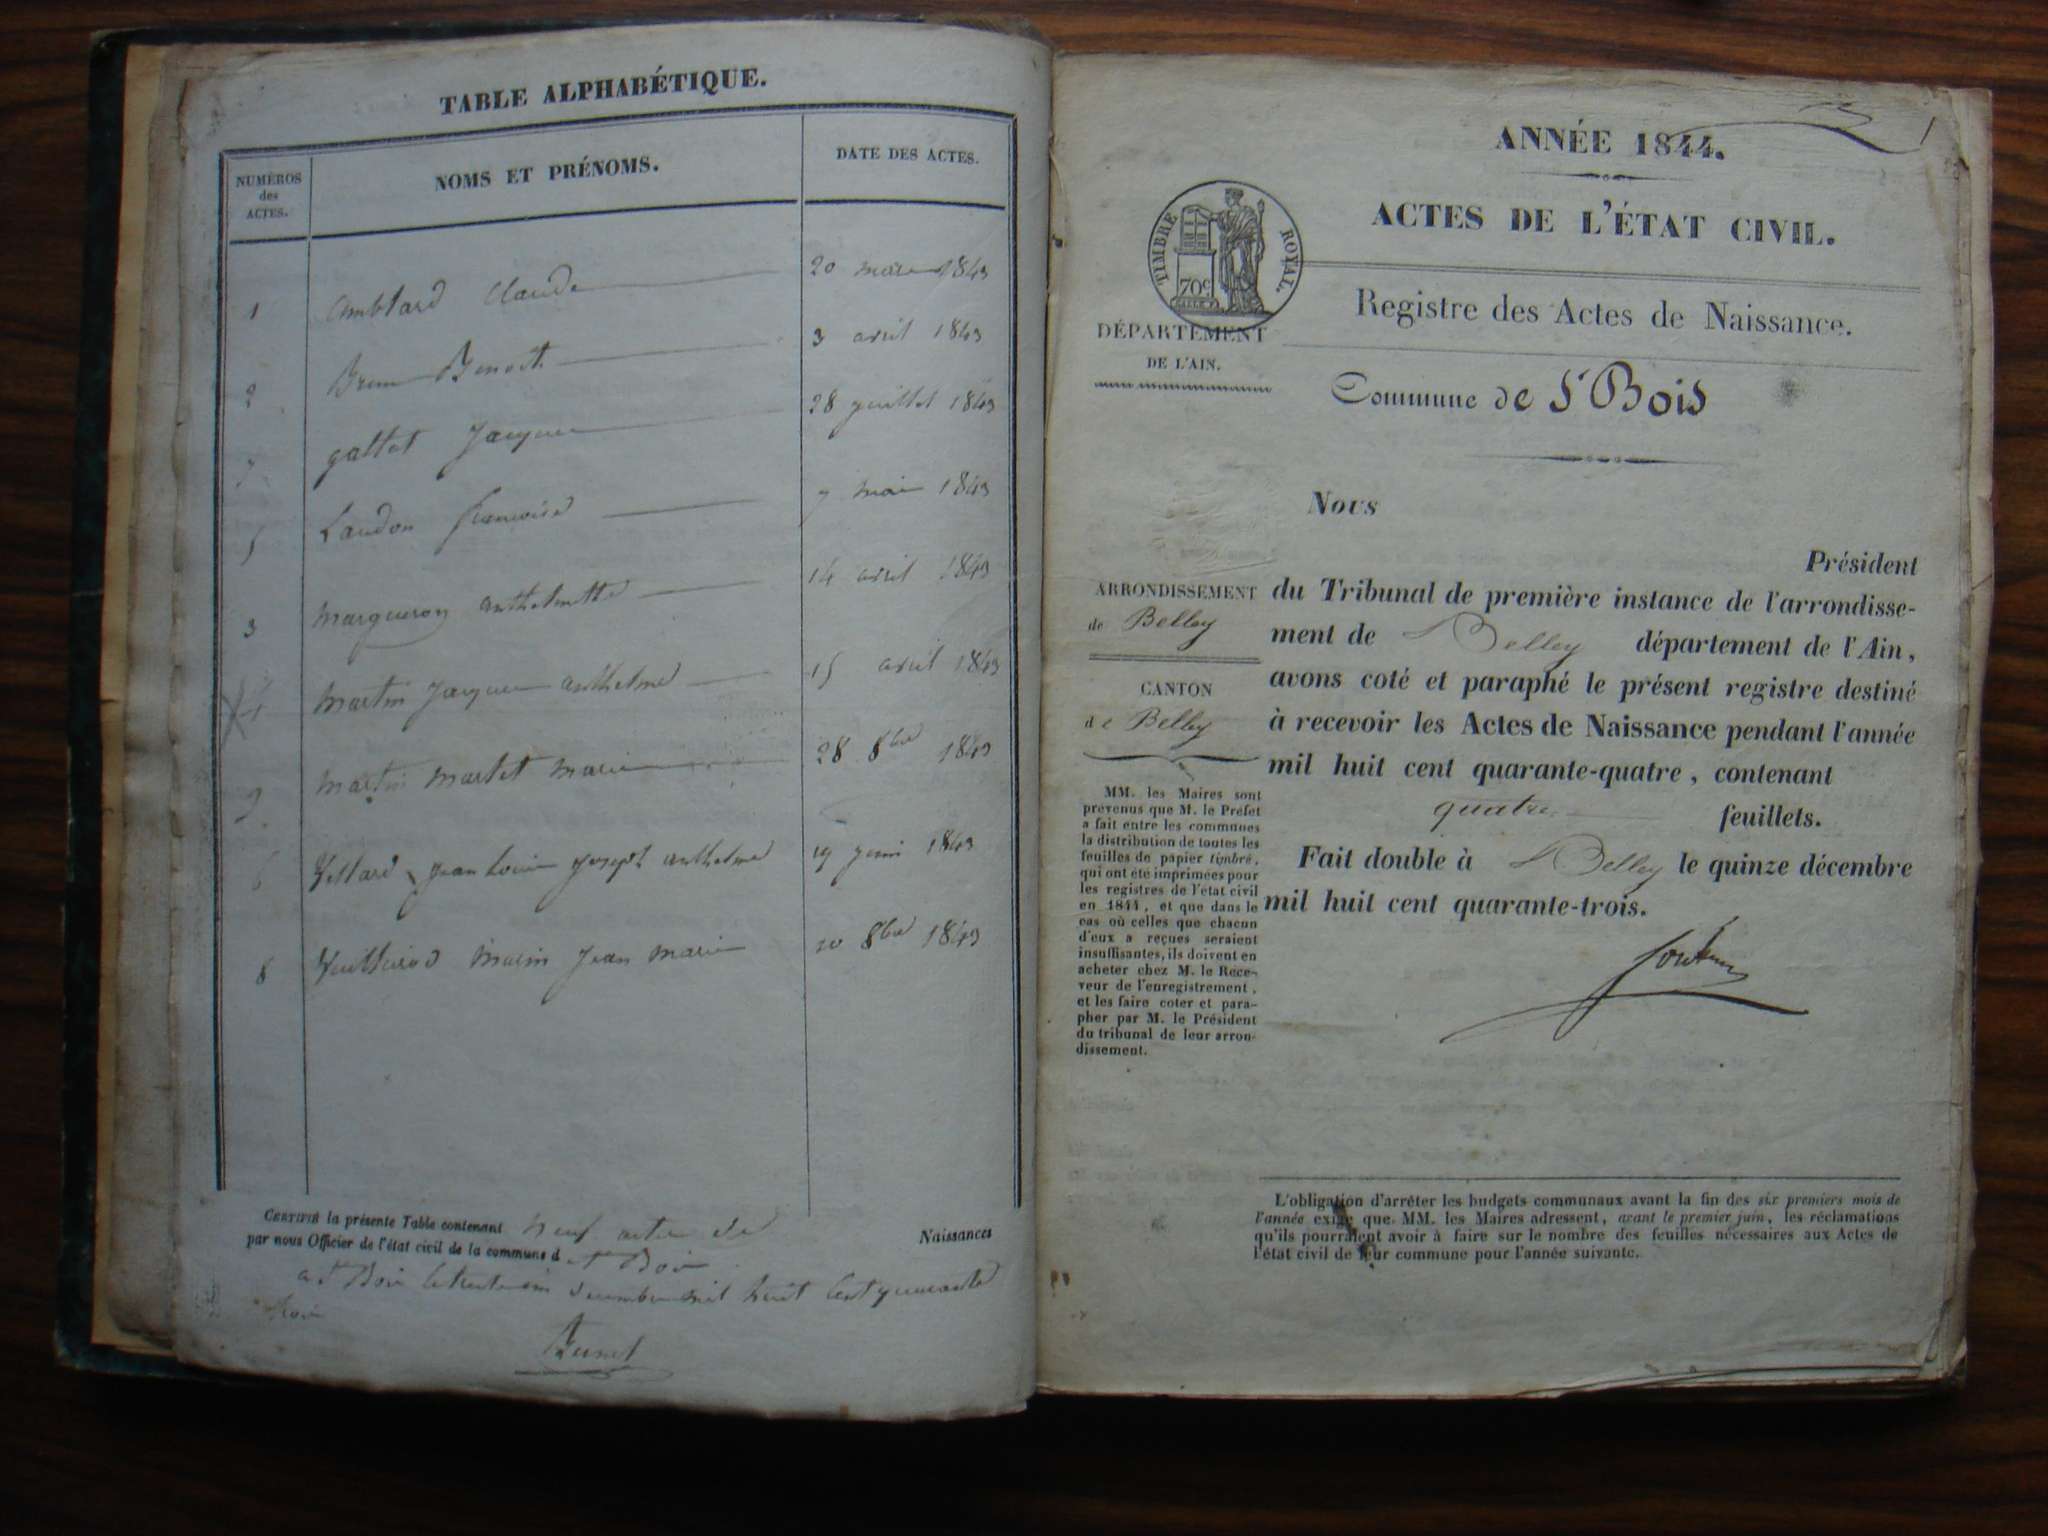 TABLE ALPHABÉTIQUE.
NUMÉROS des ACTES. NOMS ET PRÉNOMS. DATE DES ACTES.
1 Amblard Claude 20 mars 1843
2 Brun Benoit 3 avril 1843
7 gallet Jacques 28 juillet 1843
5 Landon francoise 7 mai 1843
3 Margueron anthelmette 14 avril 1843
4 Martin Jacques anthelme 15 avril 1843
9 Martin Martet Marie 28 8bre 1843
6 jean Louis joseph anthelme 19 juin 1843
8 Marin Jean Marie 20 8bre 1843
CERTIFIÉ la présente Table contenant neuf actes de Naissances
par nous Officier de l'état civil de la commune d St Bois
a St Bois le trente un decembre mil huit cent quarante
trois
ANNÉE 1844.
1
ACTES DE L'ÉTAT CIVIL.
TIMBRE ROYAL.
70c
Registre des Actes de Naissance.
DÉPARTEMENT
DE L'AIN.
Commune de St Bois
Nous
Président
du Tribunal de première instance de l'arrondisse-
ment de Belley département de l'Ain,
avons coté et paraphé le présent registre destiné
à recevoir les Actes de Naissance pendant l'année
mil huit cent quarante-quatre, contenant
quatre feuillets.
Fait double à Belley le quinze décembre
mil huit cent quarante-trois.
ARRONDISSEMENT
de Belley
CANTON
de Belley
MM. les Maires sont
prévenus que M. le Préfet
a fait entre les communes
la distribution de toutes les
feuilles de papier timbré,
qui ont été imprimées pour
les registres de l'état civil
en 1844, et que dans le
cas où celles que chacun
d'eux a reçues seraient
insuffisantes, ils doivent en
acheter chez M. le Rece-
veur de l'enregistrement,
et les faire coter et para-
pher par M. le Président
du tribunal de leur arron-
dissement.
L'obligation d'arrêter les budgets communaux avant la fin des six premiers mois de
l'année exige que MM. les Maires adressent, avant le premier juin, les réclamations
qu'ils pourraient avoir à faire sur le nombre des feuilles nécessaires aux Actes de
l'état civil de leur commune pour l'année suivante.